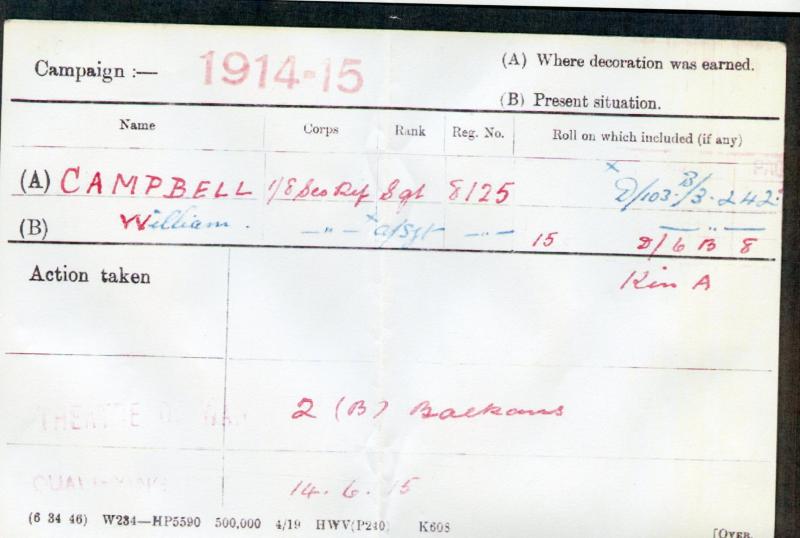 Campaign :— 1914-15 (A) Where decoration was earned.
(B) Present situation.
Name Corps Rank Reg. No. Roll on which included (if any)
(A) CAMPBELL 1/8 Sco Rif Sgt 8125 x D/103.B/3. 242.
(B) William. —"— x a/Sgt —"— — " —
15 D/6 B 8
Action taken Kin A
THEATRE OF WAR 2 (B) Balkans
QUALIFYING 14. 6. 15
(6 34 46) W234—HP5590 500,000 4/19 HWV(P240) K608
[OVER.